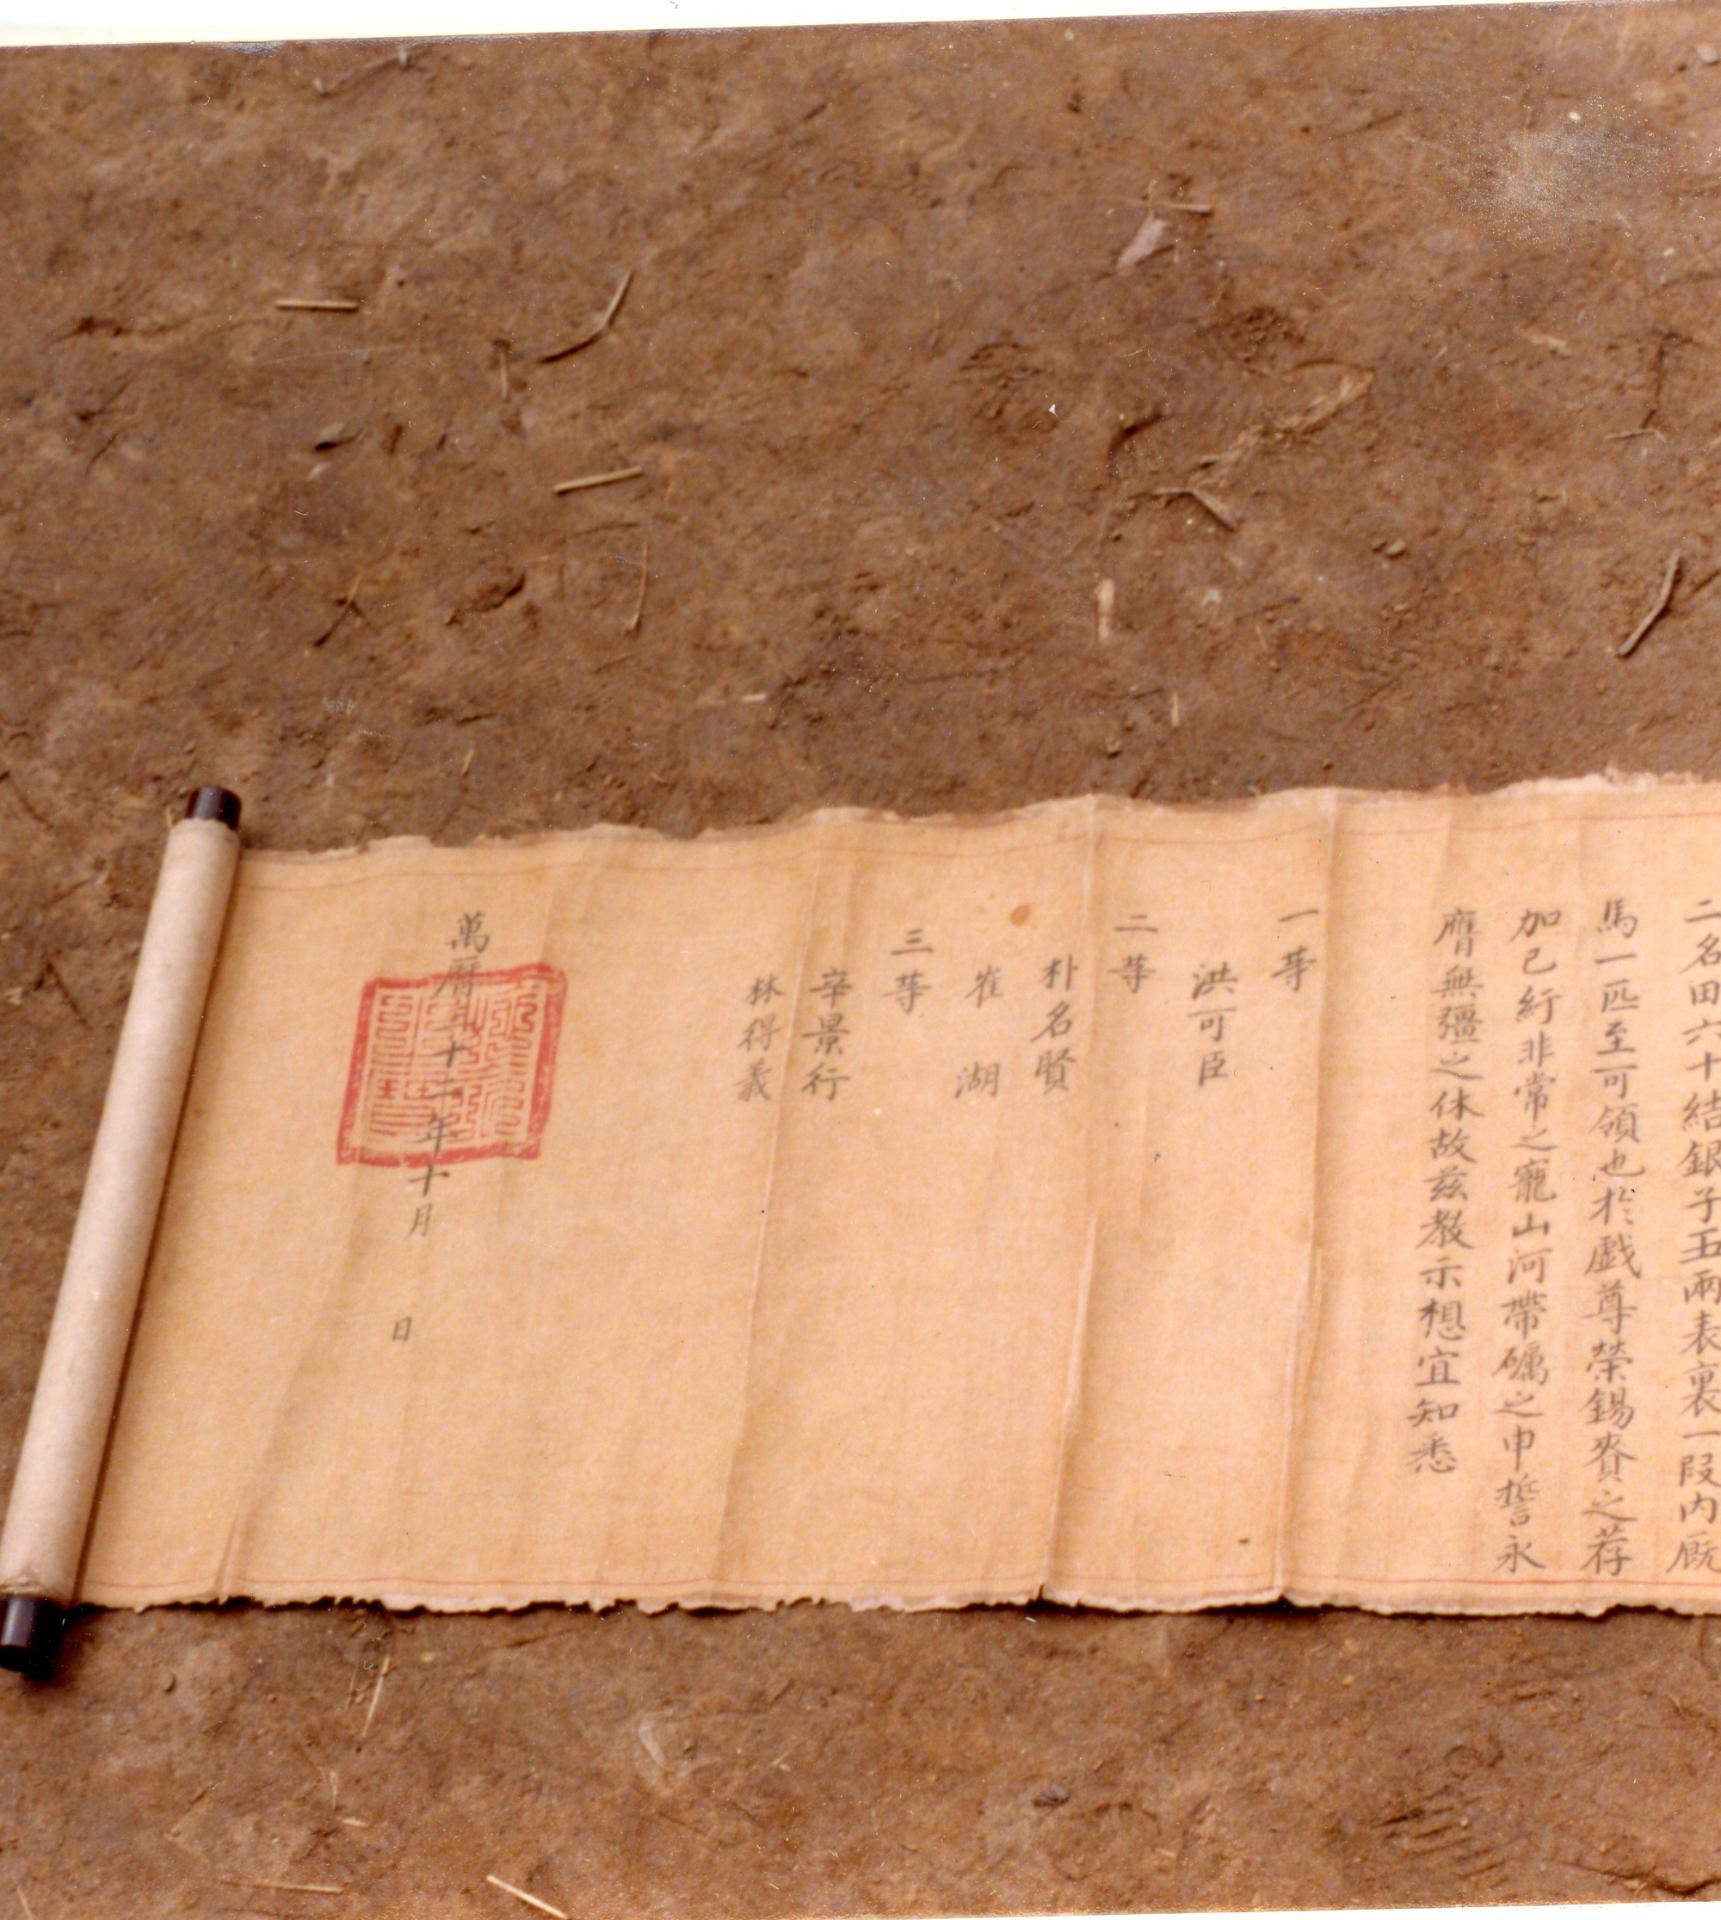 二名田六十結銀子五兩表裏一段内廐
馬一匹至可領也於戱尊榮錫賚之荐
加已紆非常之寵山河帶礪之申誓永
膺無彊之休故兹教示想宜知悉
一等
洪可臣
二等
朴名賢
崔 湖
三等
辛景行
林得義
萬曆三十二年十月 日